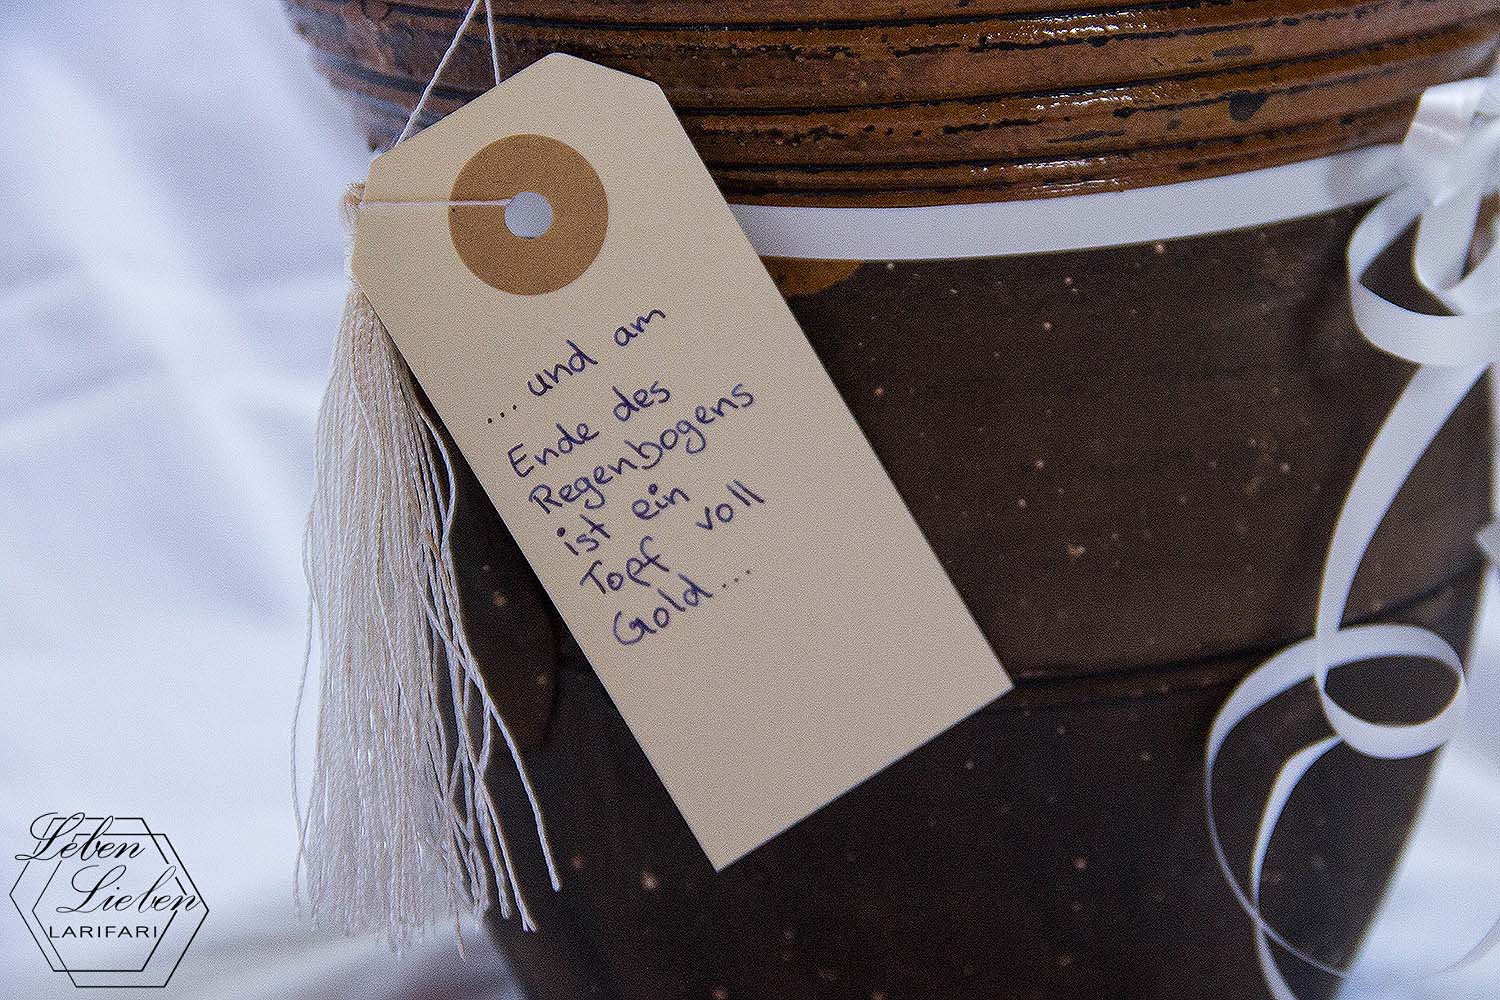 ... und am
Ende des
Regenbogens
ist ein
Topf voll
Gold...
Leben
Lieben
LARIFARI